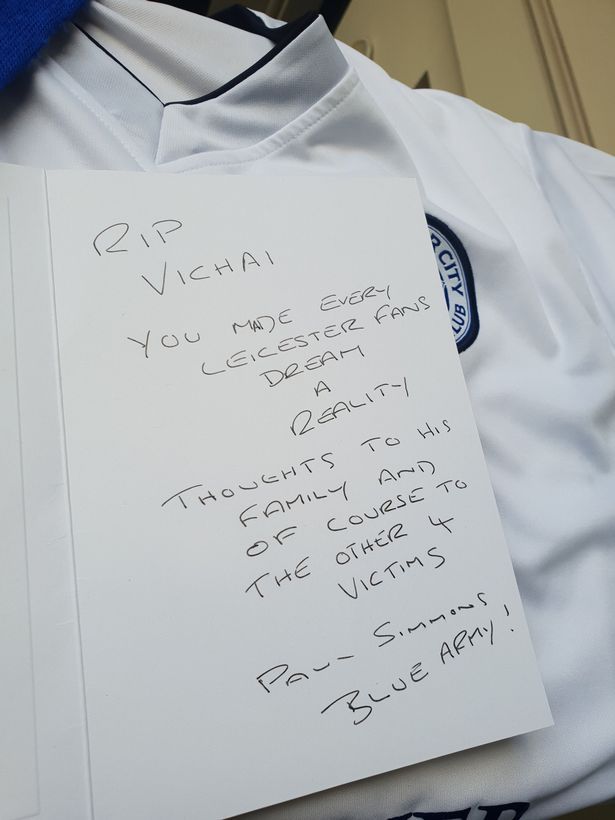 RIP
VICHAI
YOU MADE EVERY
LEICESTER FANS
DREAM
A
REALITY
THOUGHTS TO HIS
FAMILY AND
OF COURSE TO
THE OTHER 4
VICTIMS
PAUL SIMMONS
BLUE ARMY!
R CITY
LUB